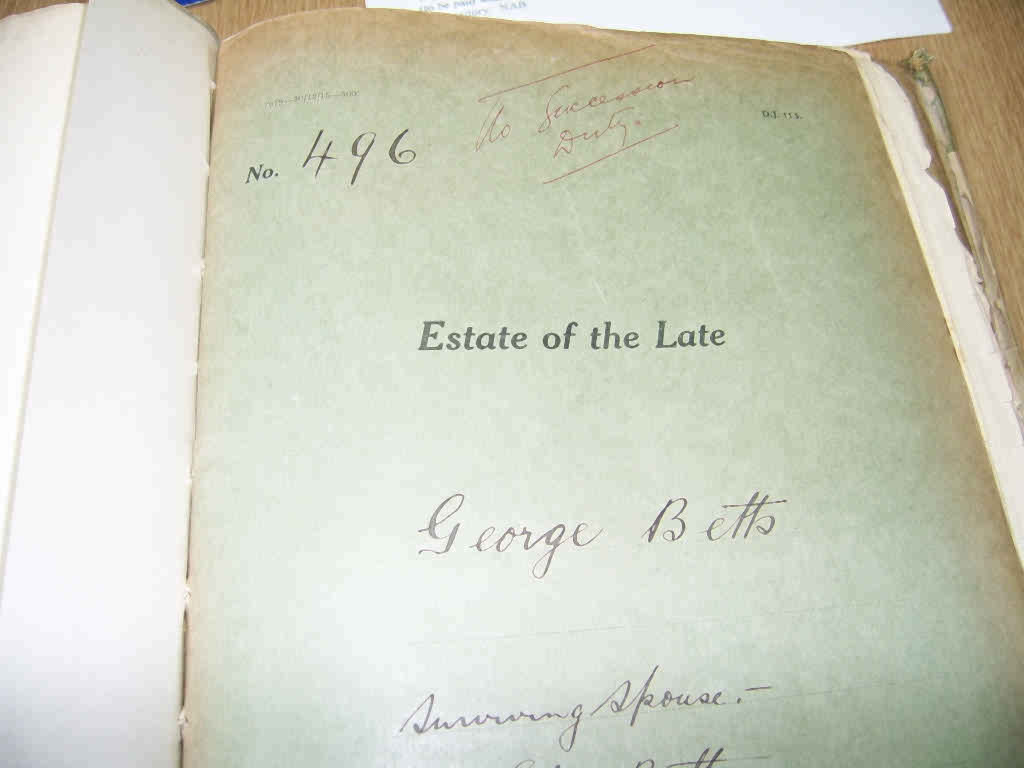 to be paid
NAB
No Succession
Duty.
D.J. 113.
No. 496
Estate of the Late
George Betts
Surviving Spouse.—
Betts